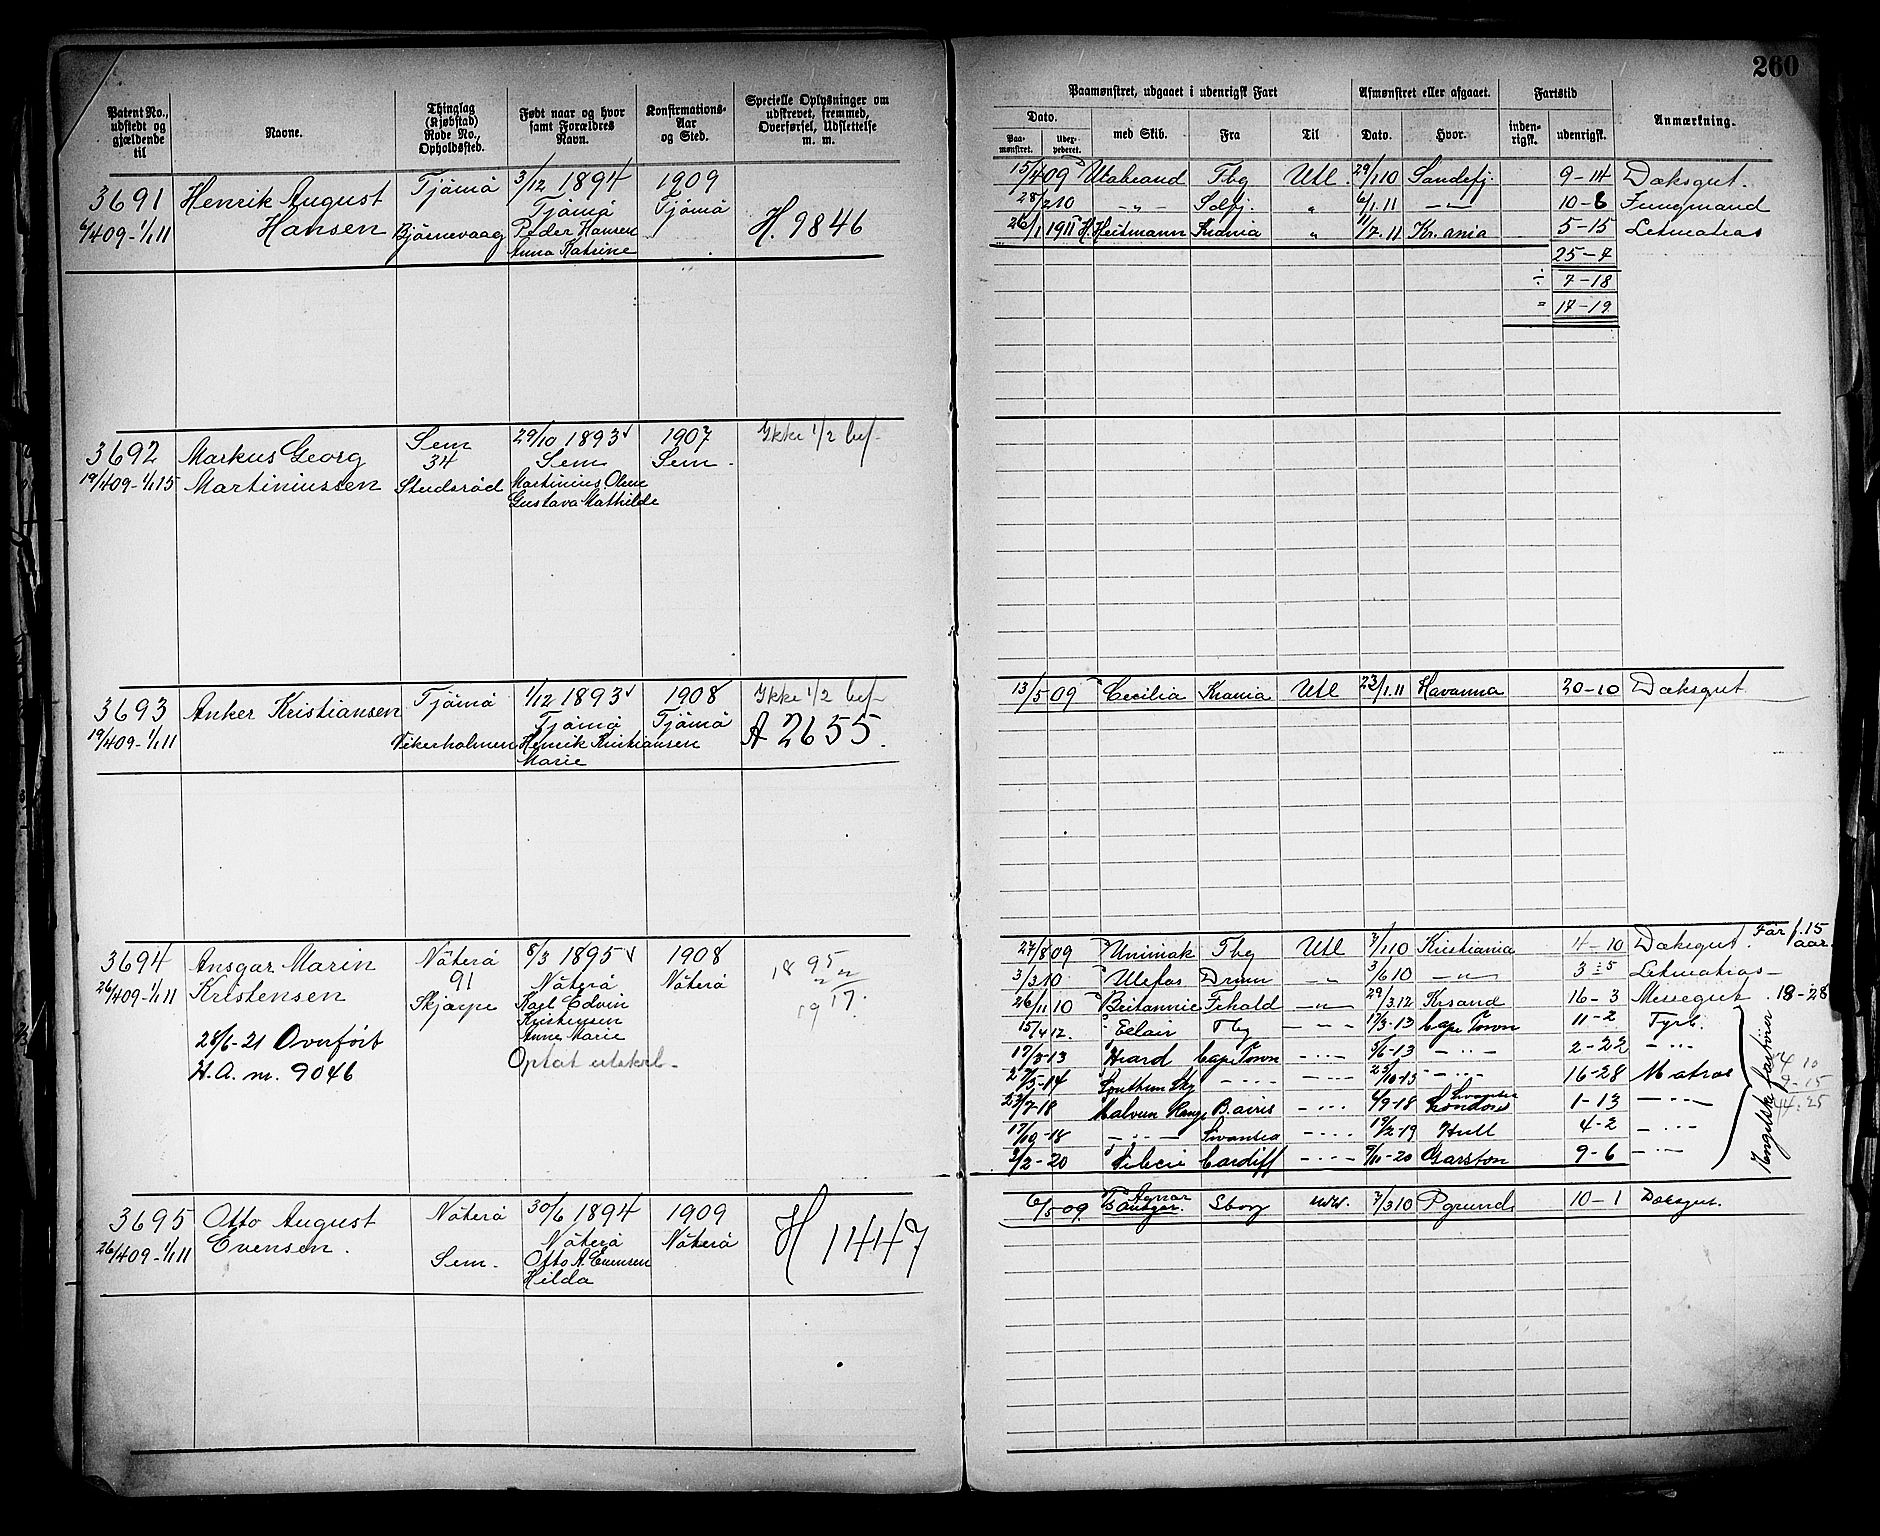 260
Patent No., udstedt og gjældende til
Navne.
Thinglag (Kjøbstad) Rode No., Opholdssted.
Født naar og hvor samt Forældres Navn.
Konfirmations-Aar og Sted.
Specielle Oplysninger om udskrevet, fremmed, Overførsel, Udslettelse m. m.
Paamønstret, udgaaet i udenrigsk Fart
Dato.
Paa-mønstret.
med Skib.
Fra
Til
Afmønstret eller afgaaet.
Dato.
Hvor.
Fartstid
inden-rigsk.
udenrigsk.
Anmærkning.
3691 Henrik August Tjømø 3/12 1894 1909
6/4 09-1/1 11 Hansen Bjørnevaag Tjømø Tjømø H. 9846
Peder Hansen
Anna Katrine
15/4 09 Tbg Utl. 29/1 10 Sandefj 9-14 Dæksgut.
28/2 10 -"- " 6/1.11 -"- 10-8 Jungmand
26/1 1911 H. Heitmann Krania " Kr.ania 5-15 Letmatros
25-7
÷ 7-18
= 17-19
3692 Markus Georg Sem 29/10 1893 1907 Ikke 1/2 bef.
19/4 09-1/1 15 Martiniussen 34 Sem Sem.
Studsrød Martinius Olsen
Gustava Mathilde
3693 Anker Kristiansen Tjømø 1/12 1893 1908 Ikke 1/2 bef.
19/4 09-1/1 11 Vikerholmen Tjømø Tjømø A 2655.
Henrik Kristiansen
Marie
13/5 09 Cecilia Krania Utl 23/1.11 Havanna 20-10 Dæksgut
3694 Ansgar Marin Nøterø 8/3 1895 1908 1895
26/4 09-1/1 11 Kristensen 91 Nøterø Nøterø 1917.
Skjærpe Karl Edvin
Kristensen
Anne Marie
28/6-21 Overført
H.A. nr. 9046
27/8 09 Unimak Tbg Utl 7/1 10 Kristiania 4-10 Dæksgut. Før f. 15 aar.
3/3 10 Ulefos Drmn -"- 3/6 10 -"- 3-5 Letmatros
26/11 10 Britannic Frhald -"- 29/3.12 Krsand 16-3 Messegut. 18-28
15/4 12. Tbg -"- 17/3-13 Cape Town 11-2 Fyrb.
17/3-13 Heard Cape Town -"- 5/6-13 -"- 2-22 -"-
Southern Sky -"- -"- -"- 16-28 Matros
Malvern Range B. aires -"- 4/9-18 London 1-13 -"-
17/10-18 -"- Swansea -"- 19/2-19 Hull 4-2 -"-
3/2-20 Cardiff -"- 9/11-20 Garston 9-6 -"-
Engelske fartøier
4 10
9-15
14.25
3695 Otto August Nøterø 30/6 1894 1909 H 11447
26/4 09-1/1 11 Evensen. Sem. Nøterø Nøterø
Otto A. Evensen
Hilda
6/5 09. Sborg utl. 7/3 10 Pgrund 10-1 Dæksgut.